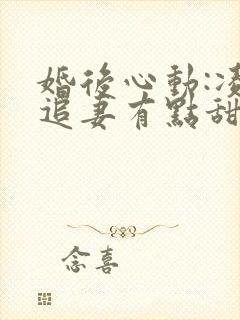 婚後心動:
追妻有點甜
念喜